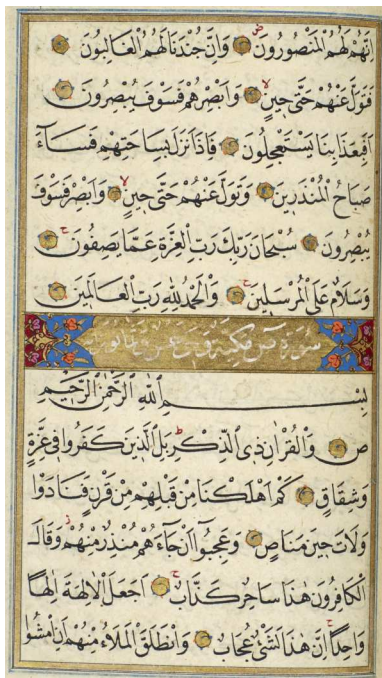 اِنَّهُمْ لَهُمُ الْمَنْصُورُونَ وَاِنَّ جُنْدَنَا لَهُمُ الْغَالِبُونَ
فَتَوَلَّ عَنْهُمْ حَتّٰى حِينٍ وَاَبْصِرْهُمْ فَسَوْفَ يُبْصِرُونَ
اَفَبِعَذَابِنَا يَسْتَعْجِلُونَ فَاِذَا نَزَلَ بِسَاحَتِهِمْ فَسَاءَ
صَبَاحُ الْمُنْذَرِينَ وَتَوَلَّ عَنْهُمْ حَتّٰى حِينٍ وَاَبْصِرْ فَسَوْفَ
يُبْصِرُونَ سُبْحَانَ رَبِّكَ رَبِّ الْعِزَّةِ عَمَّا يَصِفُونَ
وَسَلَامٌ عَلَى الْمُرْسَلِينَ وَالْحَمْدُ لِلّٰهِ رَبِّ الْعَالَمِينَ
سورة ص مكية
بِسْمِ اللهِ الرَّحْمٰنِ الرَّحِيمِ
ص وَالْقُرْاٰنِ ذِى الذِّكْرِ بَلِ الَّذِينَ كَفَرُوا فِى عِزَّةٍ
وَشِقَاقٍ كَمْ اَهْلَكْنَا مِنْ قَبْلِهِمْ مِنْ قَرْنٍ فَنَادَوْا
وَلَاتَ حِينَ مَنَاصٍ وَعَجِبُوا اَنْ جَاءَهُمْ مُنْذِرٌ مِنْهُمْ وَقَالَ
الْكَافِرُونَ هٰذَا سَاحِرٌ كَذَّابٌ اَجَعَلَ الْاٰلِهَةَ اِلٰهًا
وَاحِدًا اِنَّ هٰذَا لَشَىْءٌ عُجَابٌ وَانْطَلَقَ الْمَلَاُ مِنْهُمْ اَنِ امْشُوا